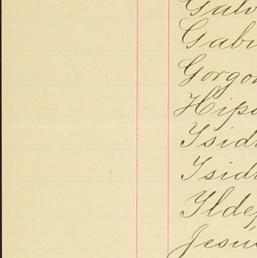 Galv
Gabi
Gorgon
Hipo
Isid
Isid
Ildef
Jesu